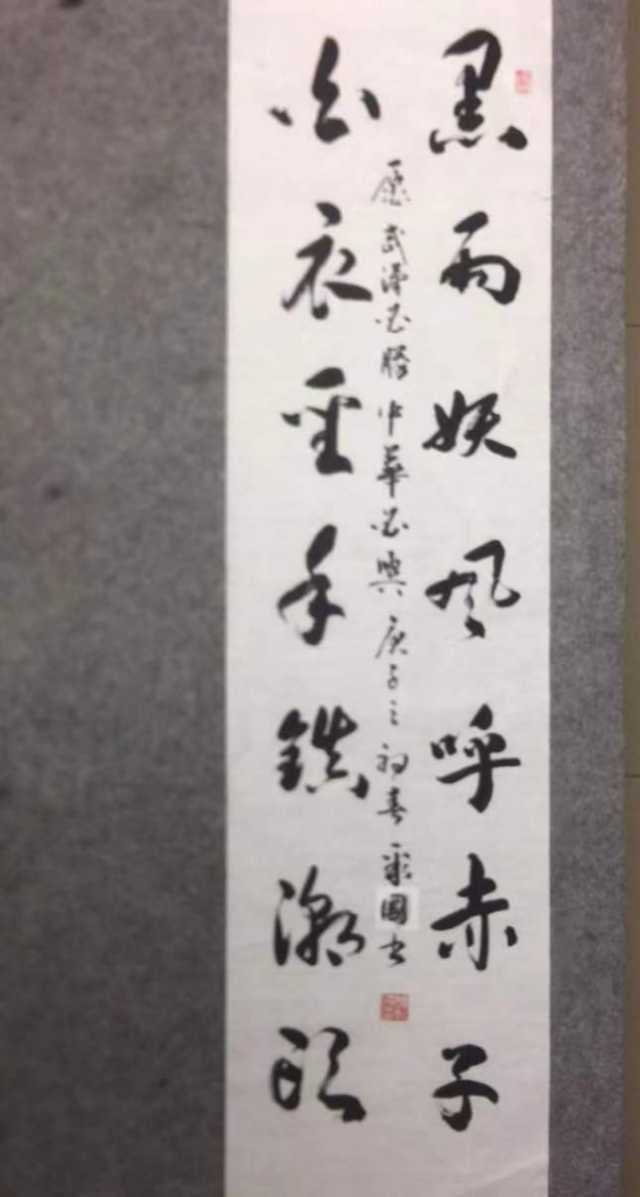 黑雨妖风呼赤子
白衣聖手鎮潮頭
愿武漢必勝中華必興庚子之初春國书